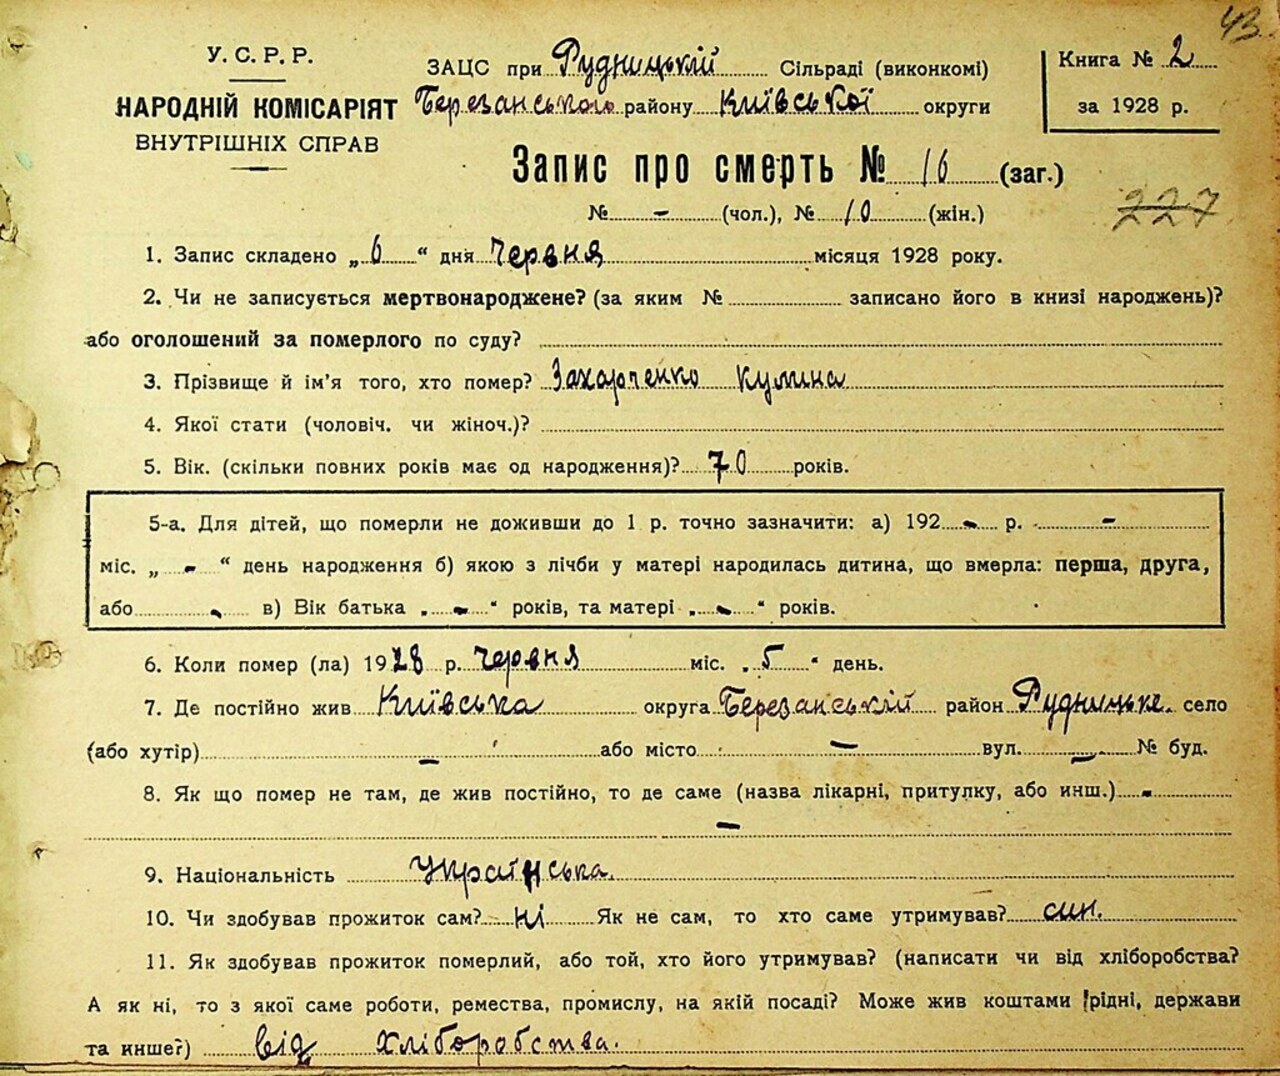 43.
У. С. Р. Р.
НАРОДНІЙ КОМІСАРІЯТ
ВНУТРІШНІХ СПРАВ
ЗАЦС при Рудницькій Сільраді (виконкомі)
Березанського району Київської округи
Книга № 2
за 1928 р.
Запис про смерть № 16 (заг.)
№ - (чол.), № 10 (жін.)
227
1. Запис складено „6“ дня червня місяця 1928 року.
2. Чи не записується мертвонароджене? (за яким № записано його в книзі народжень)?
або оголошений за померлого по суду?
3. Прізвище й ім'я того, хто помер? Захарченко Кулина
4. Якої стати (чоловіч. чи жіноч.)?
5. Вік. (скільки повних років має од народження)? 70 років.
5-а. Для дітей, що померли не доживши до 1 р. точно зазначити: а) 192 - р. -
міс. „ - “ день народження б) якою з лічби у матері народилась дитина, що вмерла: перша, друга,
або - в) Вік батька „ - “ років, та матері „ - “ років.
6. Коли помер (ла) 1928 р. червня міс. „5“ день.
7. Де постійно жив Київська округа Березанській район Рудницьке. село
(або хутір) - або місто - вул. - № буд.
8. Як що помер не там, де жив постійно, то де саме (назва лікарні, притулку, або инш.) -
-
9. Національність Українська.
10. Чи здобував прожиток сам? ні Як не сам, то хто саме утримував? син.
11. Як здобував прожиток померлий, або той, хто його утримував? (написати чи від хліборобства?
А як ні, то з якої саме роботи, ремества, промислу, на якій посаді? Може жив коштами рідні, держави
та инше?) від хліборобства.